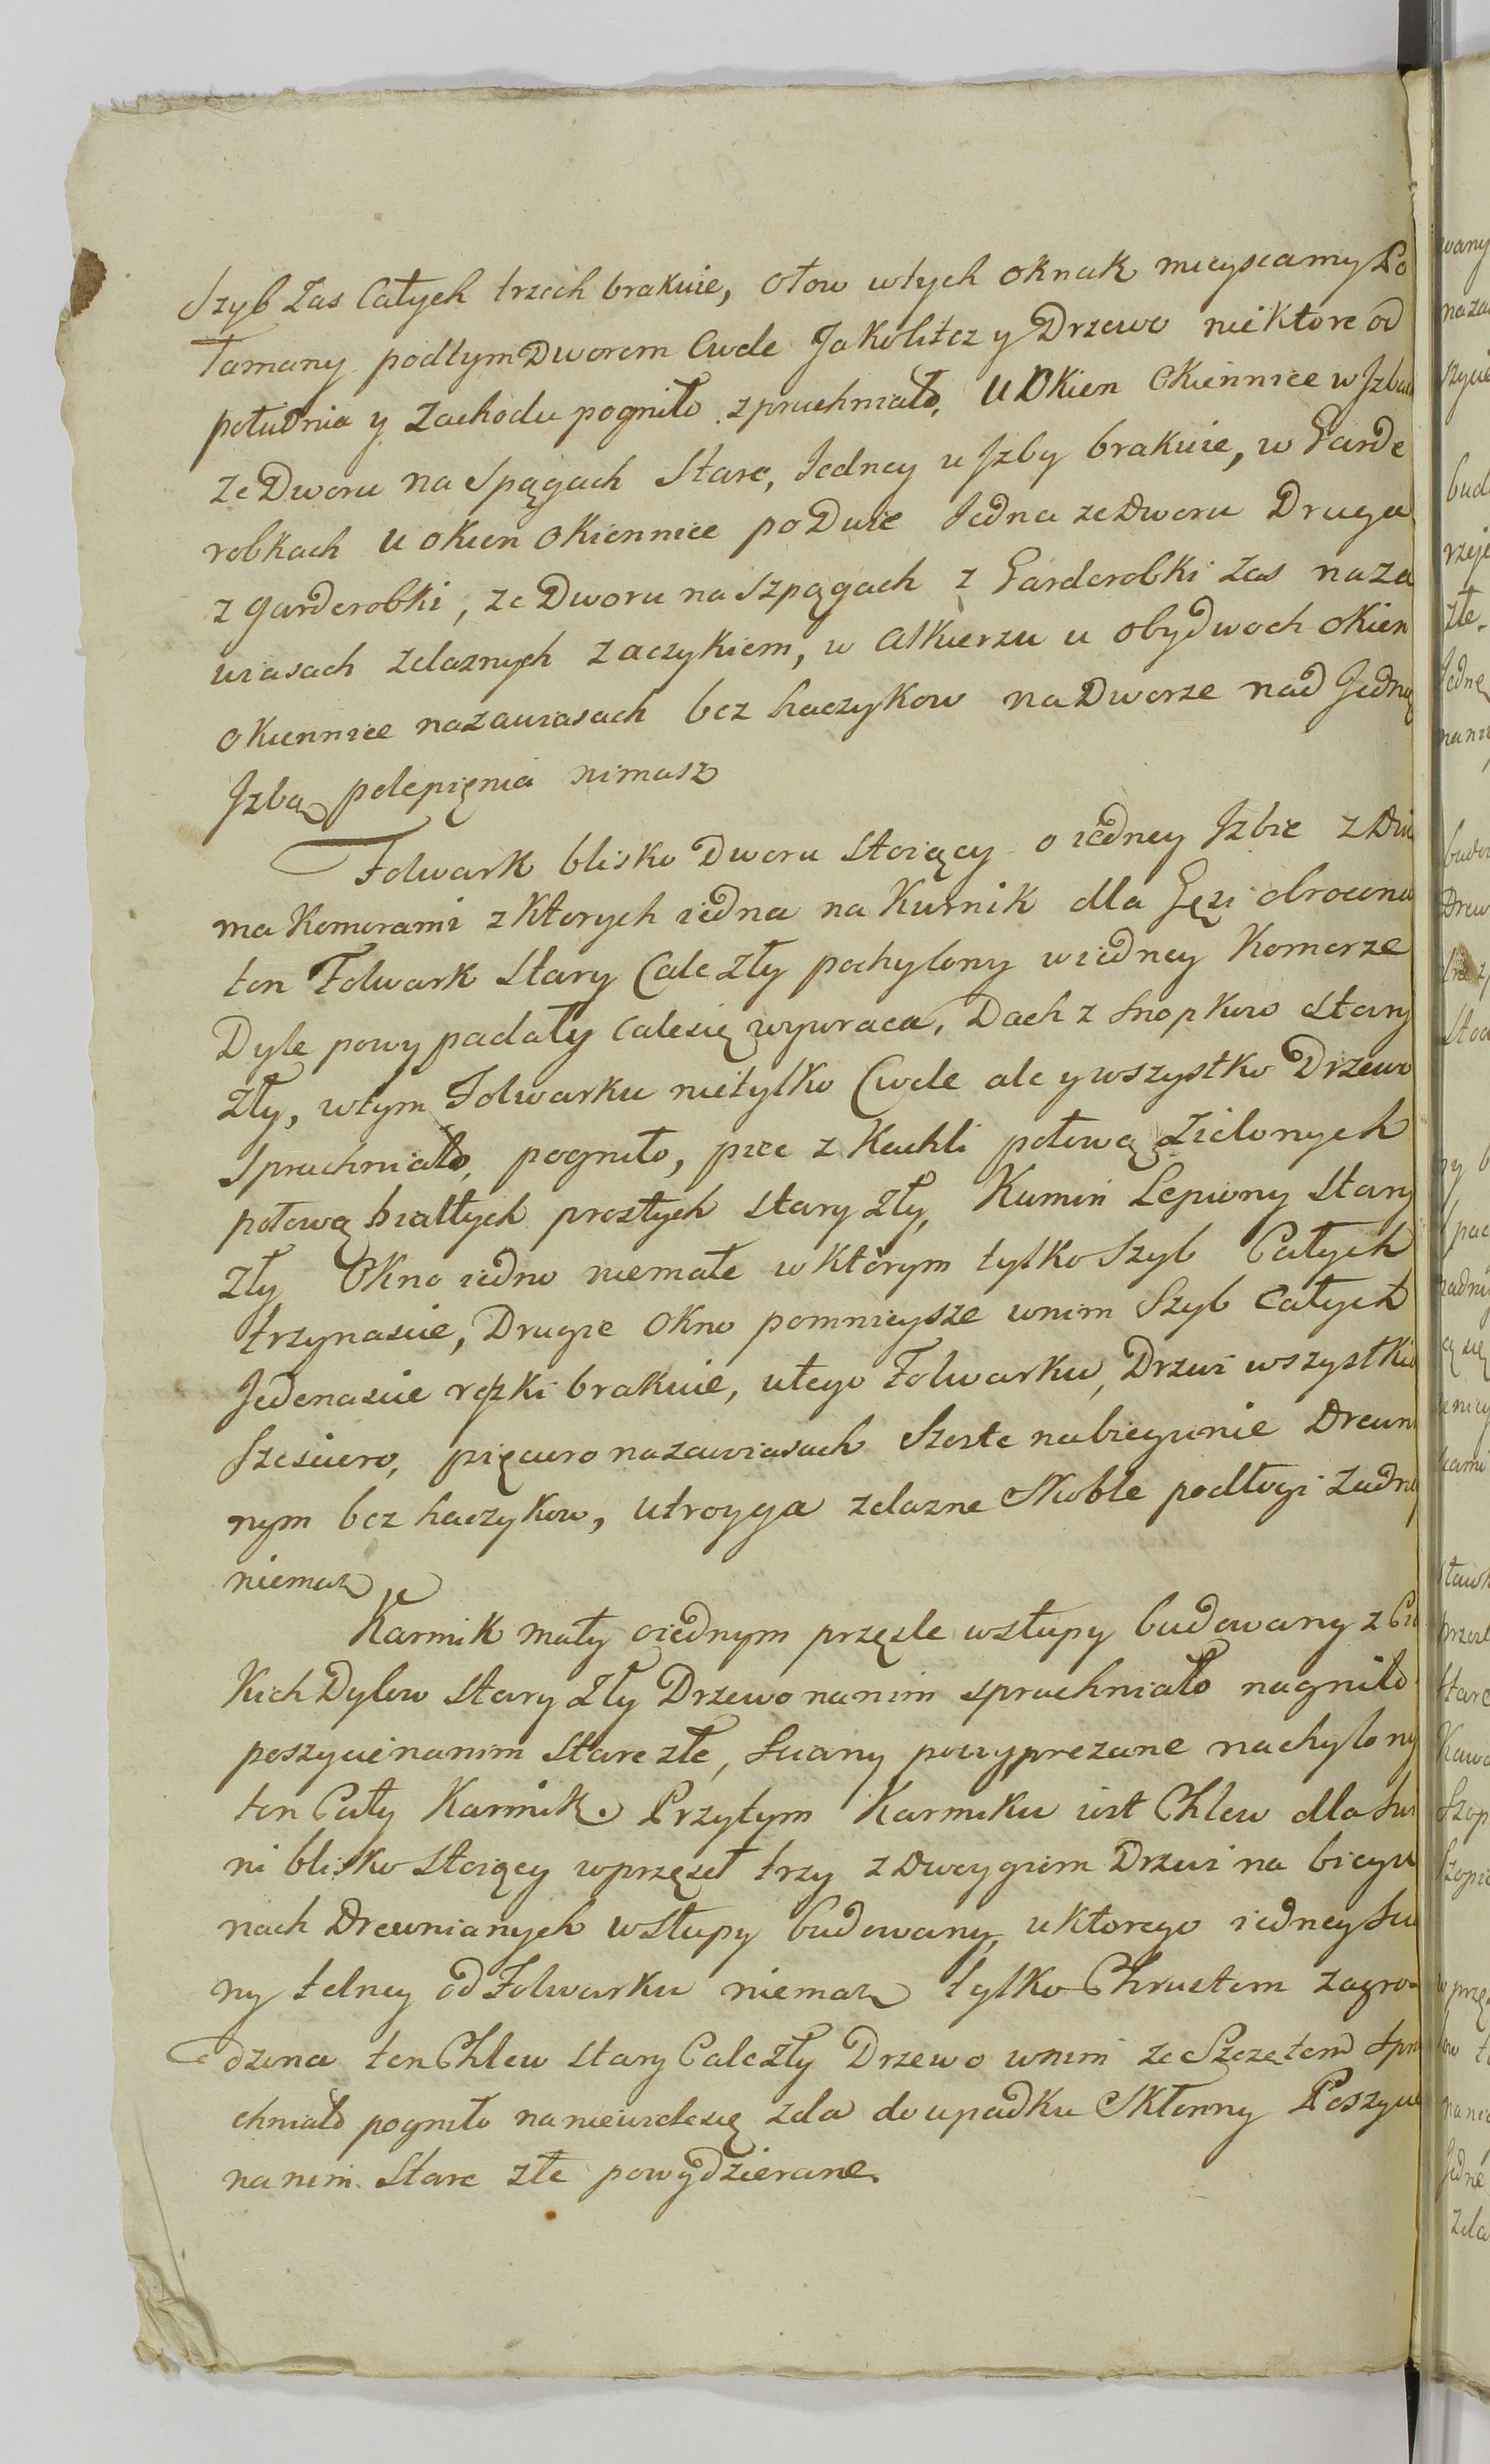 Szyb zas Całych trzech brakuie, ołow wtych oknak mieyscamy Po
łamany podtym Dworem Cwele Jakolitcz y Drzewo niektore od
południa y Zachodu pogniło zpruchniało, U Okien Okiennice w Jzbach
ze Dworu na Spągach Stare, Jedney u Jzby brakuie, w Garde
robkach u okien okiennice po Dwie Jedna ze Dworu Druga
z garderobki, ze Dworu na Szpągach z Garderobki zas na za
wiasach zelaznych zaczykiem, w Alkierzu u obydwoch okien
okiennice nazawiasach bez haczykow na Dworze nad Jedną
Jzbą polepięnia nimasz
Folwark blisko Dworu stoiący o iedney Jzbie z Dwi
ma Komorami z ktorych iedna na Kurnik dla Gęsi obrocona
ten Folwark Stary Cale Zły pochylony wiedney Komorze
Dyle powypadały calesię wywraca, Dach z Snopkow stary
Zły, wtym Folwarku nietylko Cwele ale y wszystko Drzewo
Spruchniało, pogniło, piec z Kachli połową Zielonych
połową białtych prostych stary zły, Kumin Lepiony stary
Zły Okno iedno niemałe w ktorym tylko Szyb Całych
trzynascie, Drugie Okno pomnieysze wnim Szyb całych
Jedenascie rożki brakuie, utego Folwarku, Drzwi wszystkich
Szescioro, pięcioro nazawiasach Szoste nabiegunie Drewnia
nym bez haczykow, utroyga zelazne Skoble podłogi zadney
niemasz
Karmik mały oiednym przęsle wsłupy budowany z Cię
kich Dylow stary Zły Drzewo nanim spruchniało nagniło
poszycie nanim Stare złe, Sciany powyprezane nachylony
ten Cały Karmik. Przytym Karmiku iest Chlew dla Swi
ni blisko stoiący wprzęseł trzy z Dwoygiem Drzwi na biegu
nach Drewnianych wsłupy budowany, u ktorego iedney Scia
ny telney od Folwarku niemasz tylko Chrustem zagro-
dzona ten Chlew stary Cale zły Drzewo wnim ze Szczętem spru
chniało pogniło naniewielesię zda do upadku Skłonny Poszycie
na nim Stare złe powydzierane.